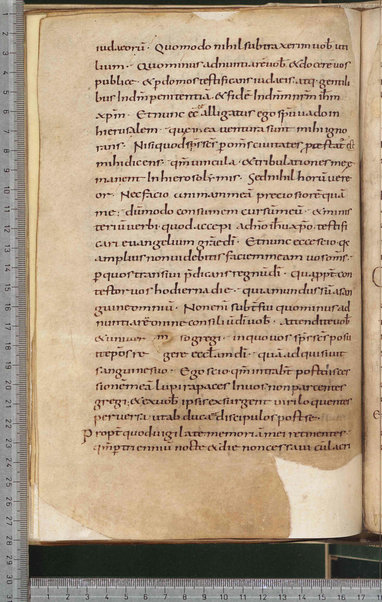 iudaeorū · Quomodo nihil subtraxerim uob̄ uti
lium · Quominus adnuntiarē uob̄ · & docerē uos
publice · & p̱ domos testificans iudaeis atq; gentili
bus Indm̄ penitentiā · & fidē Indn̄m nr̄m ihm̄
xpm̄ · Et nunc ecce alligatus ego spū uado in
hierusalem · quae in ea uentura sunt mihi igno
rans · Nisi quod sps̄ scs̄ per om̄s ciuitates p̱testat̄
mihi dicens · qm̄ uincula · & tribulationes me
manent In hierosolymis · Sed nihil horū uere
or · Nec facio animam meā preciosiorē quā
me · dūmodo consumem cursū meū · & minis
teriū uerbi quod accepi adn̄o ihu xp̄o · testifi
cari euangelium gratiae dī · Et nunc ecce scio qa
amplius non uidebitis faciem meam uos om̄s ·
p̱ quos transiui p̄dicans regnū dī · Quapropt̄ con
testor uos hodierna die · quia mundus sū a san
guine omniū · Non enī subt̄fui quominus ad
nuntiarē omne consiliū dī uob̄ · Attendite uob̄
& uniuer so gregi · in quo uos sps̄ scs̄ posu
it ep̄os re gere ecclam dī · quā adquisiuit
sanguine suo · Ego scio qm̄ intrab̄t post disces
sionem meā lupi rapaces In uos non parcentes
gregi · & ex uob̄ ipsis exsurgent uiri loquentes
peruersa ut abducā discipulos post se ·
Propt̄ quod uigilate memoriā mei retinentes ·
qm̄ p̱ trienniū nocte & die non cessaui cū lacri